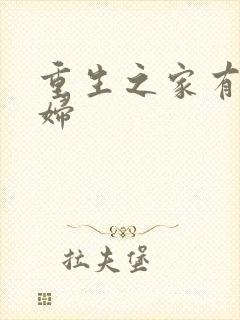 重生之家有
婦
拉夫堡